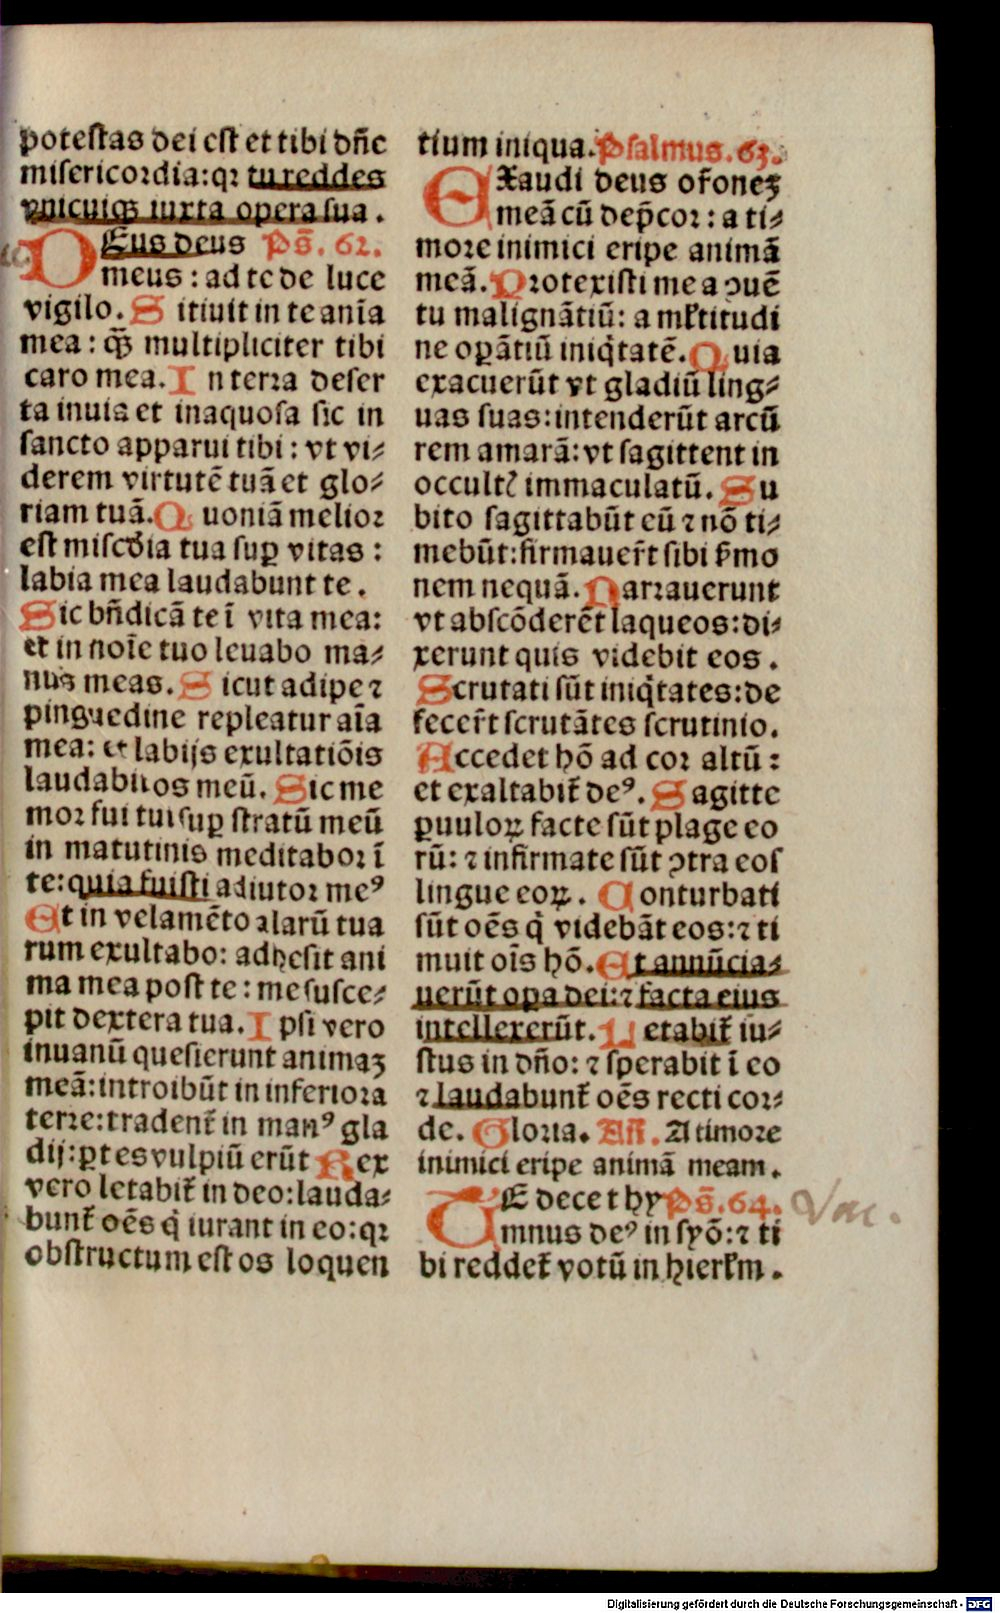 potestas dei est et tibi dñe
misericordia: qꝛ tu reddes
vnicuiqꝫ iuxta opera sua.
DEus deus Ps̄. 62.
meus: ad te de luce
vigilo. Sitiuit in te anīa
mea: qꝫ̄ multipliciter tibi
caro mea. In terra deser
ta inuia et inaquosa sic in
sancto apparui tibi: vt vi⸗
derem virtutē tuā et glo⸗
riam tuā. Quoniā melior
est miscd̓ia tua suꝑ vitas:
labia mea laudabunt te.
Sic bn̄dicā te ī vita mea:
et in noīe tuo leuabo ma⸗
nus meas. Sicut adipe ⁊
pinguedine repleatur aīa
mea: et labijs exultatiōis
laudabit os meū. Sic me
mor fui tui suꝑ stratū meū
in matutinis meditabor ī
te: quia fuisti adiutor meꝰ
Et in velamēto alarū tua
rum exultabo: adhesit ani
ma mea post te: me susce⸗
pit dextera tua. Ipsi vero
inuanū quesierunt animaꝫ
meā: introibūt in inferiora
terre: tradent᷑ in manꝰ gla
dij: ꝑtes vulpiū erūt Rex
vero letabit᷑ in deo: lauda⸗
bunt᷑ oēs q̇ iurant in eo: qꝛ
obstructum est os loquen
tium iniqua. Psalmus. 63.
EXaudi deus oŕoneꝫ
meā cū dep̄cor: a ti⸗
more inimici eripe animā
meā. Protexisti me a ꝯuē
tu malignātiū: a mĺtitudi
ne oꝑātiū iniq̇tatē. Quia
exacuerūt vt gladiū ling⸗
uas suas: intenderūt arcū
rem amarā: vt sagittent in
occultꝭ immaculatū. Su
bito sagittabūt eū ⁊ nō ti⸗
mebūt: firmauer̄t sibi s̓mo
nem nequā. Narrauerunt
vt abscōderēt laqueos: di⸗
xerunt quis videbit eos.
Scrutati sūt iniq̇tates: de
fecer̄t scrutātes scrutinio.
Accedet hō ad cor altū:
et exaltabit᷑ deꝰ. Sagitte
ꝑuuloꝝ facte sūt plage eo
rū: ⁊ infirmate sūt ꝯtra eos
lingue eoꝝ. Conturbati
sūt oēs q̇ videbāt eos: ⁊ ti
muit oīs hō. Et annūcia⸗
uerūt oꝑa dei: ⁊ facta eius
intellexerūt. Letabit᷑ iu⸗
stus in dño: ⁊ sperabit ī eo
⁊ laudabunt᷑ oēs recti cor⸗
de. Gloria. Añ. A timore
inimici eripe animā meam.
TE decet hy Ps̄. 64. Vac.
mnus deꝰ in syō: ⁊ ti
bi reddet᷑ votū in hierĺm.
Digitalisierung gefördert durch die Deutsche Forschungsgemeinschaft - DFG